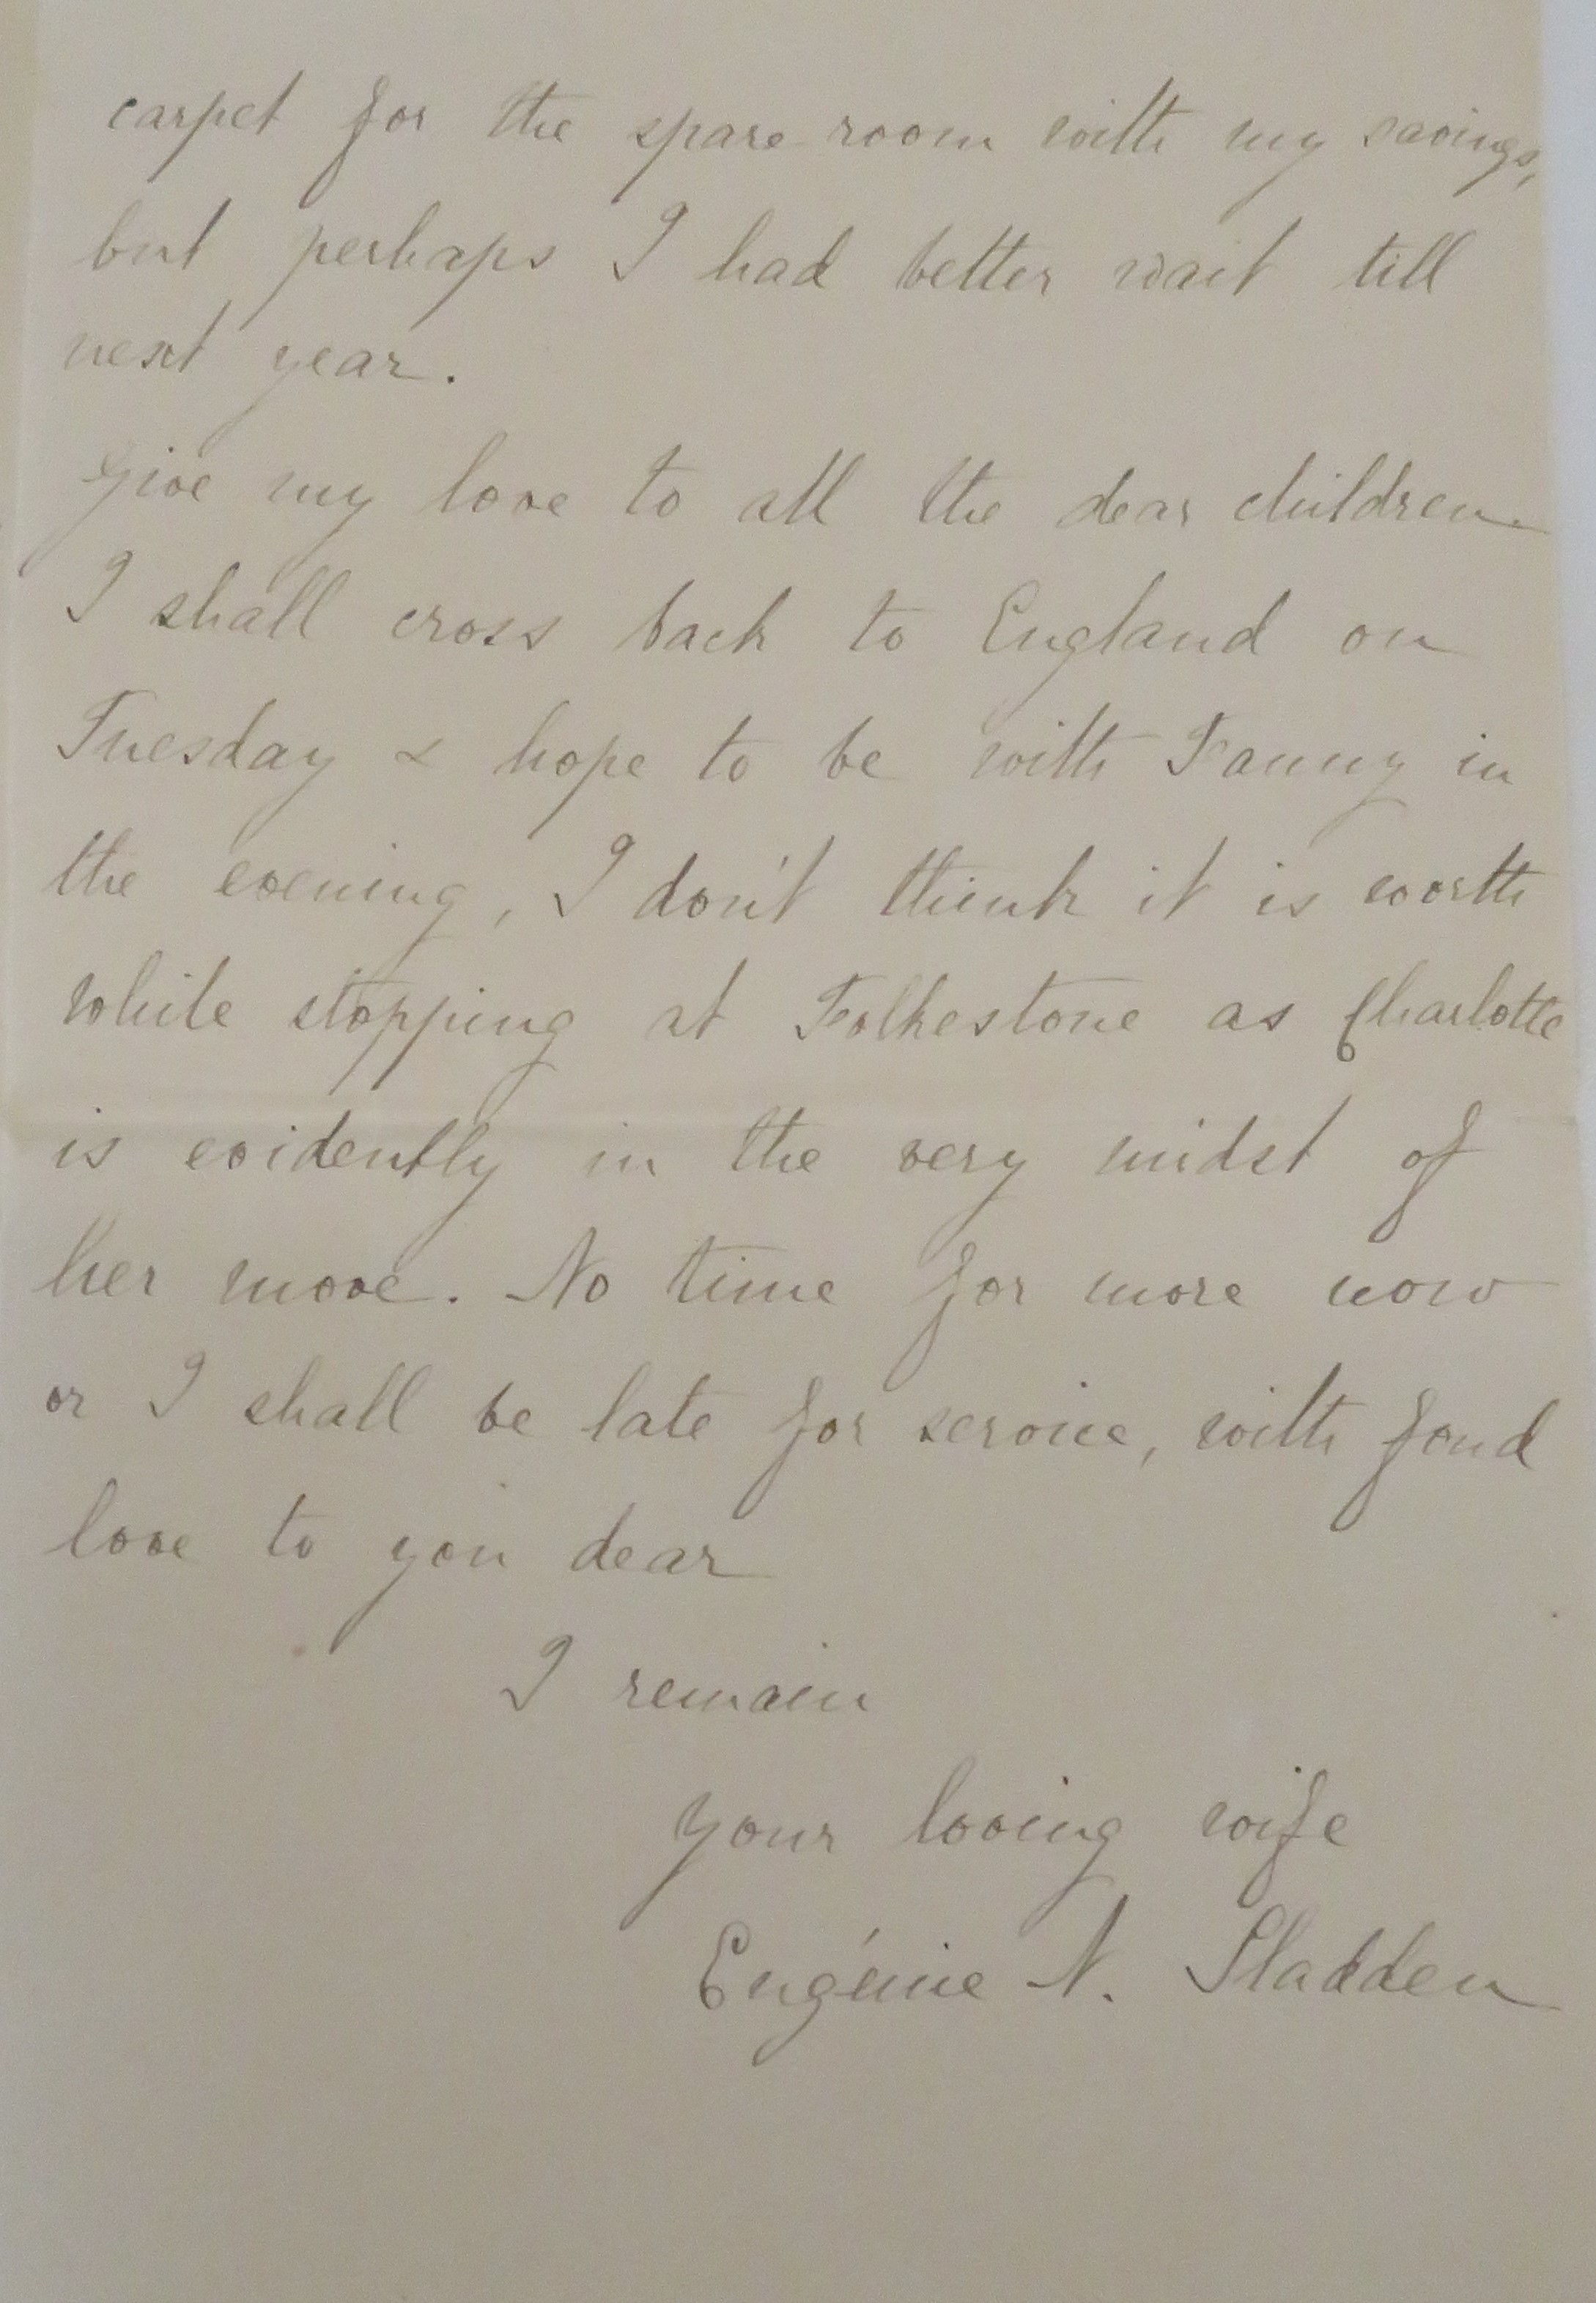 carpet for the spare room with my savings,
but perhaps I had better wait till
next year.
Give my love to all the dear children.
I shall cross back to England on
Tuesday & hope to be with Fanny in
the evening, I don't think it is worth
while stopping at Folkestone as Charlotte
is evidently in the very midst of
her move. No time for more now
or I shall be late for service, with fond
love to you dear
I remain
your loving wife
Eugénie N. Sladden